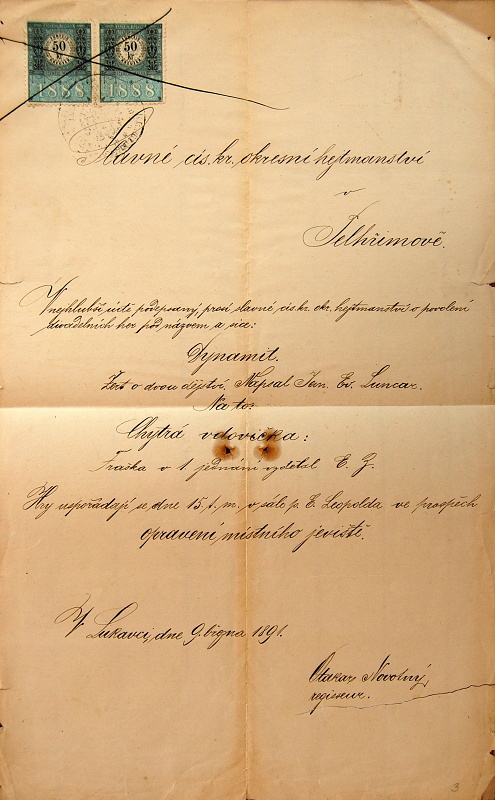 50 50
kr kr
1888 1888
Slavné cís. kr. okresní hejtmanství
v
Pelhřimově.
V nejhlubší úctě podepsaný prosí slavné cís. kr. okr. hejtmanství o povolení
divadelních her pod názvem a sice:
Dynamit.
Žert o dvou dějství. Napsal Jan. Ev. Luncar.
Na to:
Chytrá vdovička:
Fraška v 1 jednání vzdělal E. Z.
Hry uspořádají se dne 15. t. m. v sále p. E. Leopolda ve prospěch
opravení místního jeviště.
V Lukavci, dne 9. října 1891.
Otakar Novotný,
regisseur.
3